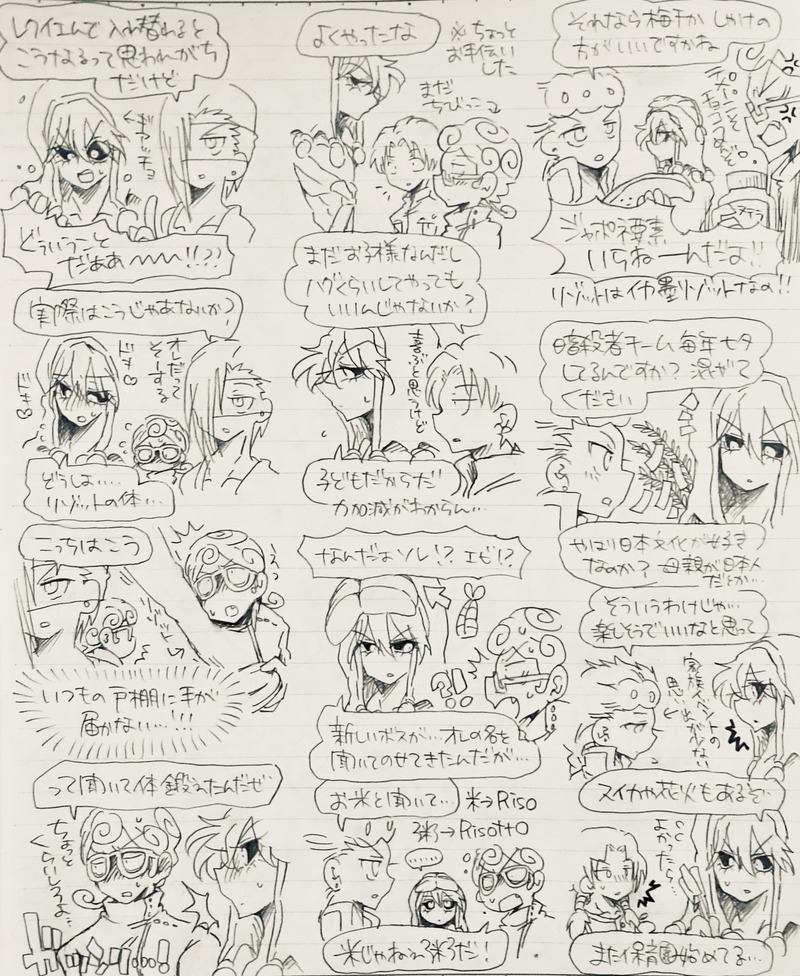 レクイエムで入れ替わると
こうなるって思われがち
だけど
どういうこと
だああ〜〜〜!!??
実際はこうじゃあないか?
オレだって
そーする
ドキ♡
ドキ♡
どうしよ…
リゾットの体…
こっちはこう
いつもの戸棚に手が
届かない…!!!
って聞いて体鍛えたんだぜ
ちょっと
くらいしろよ…
よくやったな
※ちょっと
お手伝い
した
まだ
ちびっこ
まだお子様なんだし
ハグくらいしてやっても
いいんじゃないか?
喜ぶと思うけど
子どもだからだ
力加減がわからん…
なんだよソレ!?エビ!?
新しいボスが…オレの名を
聞いてのせてきたんだが…
お米と聞いて…
米→Riso
粥→Risotto
……
米じゃねぇ粥だ!
それなら梅干かしゃけの
方がいいですかね
ジャポネ要素
いらねーんだよ!!
リゾットはイカ墨リゾットなの!!
暗殺者チーム毎年七夕
してるんですか?混ぜて
ください
やはり日本文化が好き
なのか?母親が日本人
だとか…
そういうわけじゃ…
楽しそうでいいなと思って
家族イベントの
思い出が少ない
スイカや花火もあるぞ
よかったら…
また保育園始めてる…